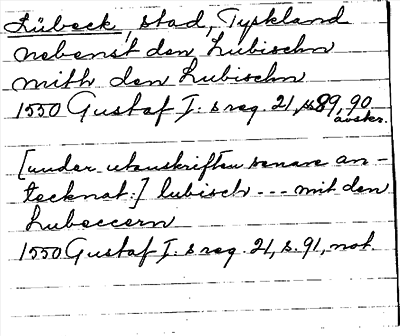 Lübeck, stad, Tyskland
nebenst den Lubischn
mith den Lubischn
1550 Gustaf I:s reg. 21, s. 89, 90
avskr.
[under utanskriften senare an-
tecknat:] lubisch --- mit den
Lubeccern
1550 Gustaf I:s reg. 21, s. 91, not.